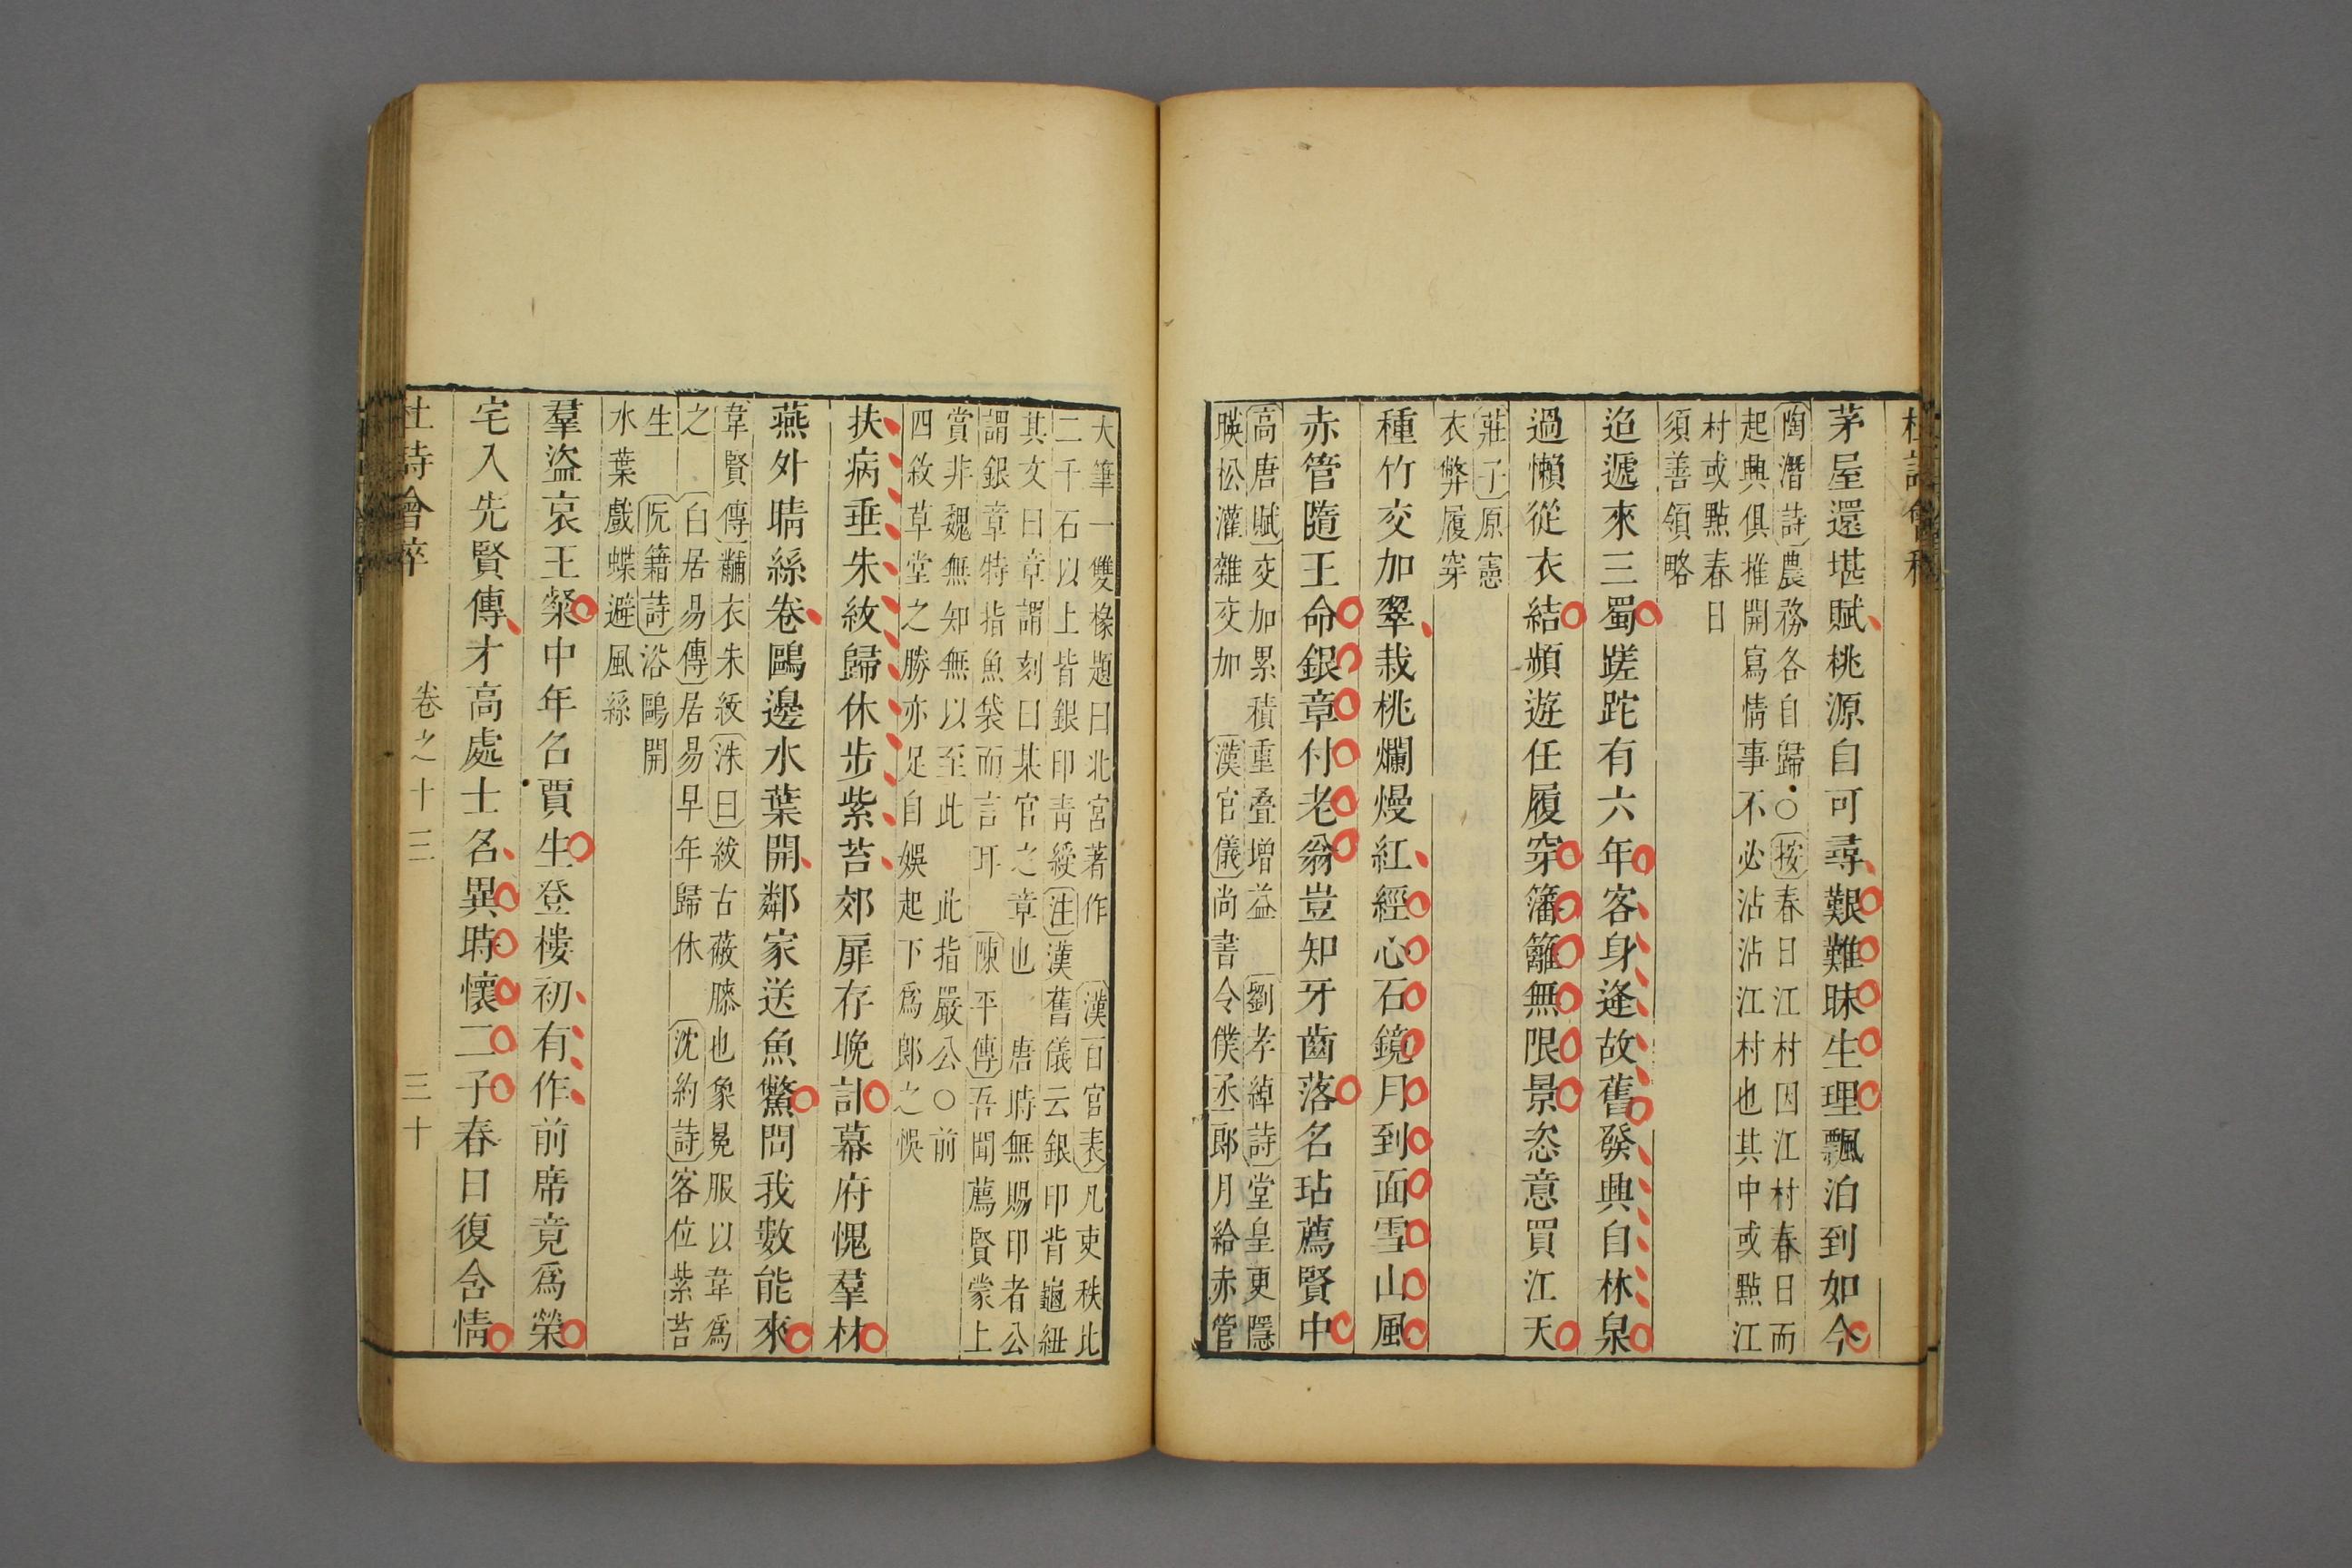 杜詩會稡
茅屋還堪賦桃源自可尋艱難昧生理飄泊到如今
陶潛詩農務各自歸○按春日江村因江村春日而
起興俱推開寫情事不必沾沾江村也其中或點江
村或點春日
須善領略
迢遞來三蜀蹉跎有六年客身逢故舊發興自林泉
過懶從衣結頻遊任履穿籓籬無限景恣意買江天
莊子原憲
衣弊履穿
種竹交加翠栽桃爛熳紅經心石鏡月到面雪山風
赤管隨王命銀章付老翁豈知牙齒落名玷薦賢中
高唐賦交加累積重叠增益 劉孝綽詩堂皇更隱
暎松灌雜交加 漢官儀尚書令僕丞郎月給赤管
大筆一雙椽題曰北宮著作 漢百官表凡吏秩比
二千石以上皆銀印青綬注漢舊儀云銀印背龜紐
其文曰章謂刻曰某官之章也 唐時無賜印者公
謂銀章特指魚袋而言耳 陳平傳吾聞薦賢蒙上
賞非魏無知無以至此 此指嚴公○前
四敘草堂之勝亦足自娛起下爲郎之悞
扶病垂朱紱歸休步紫苔郊扉存晚計幕府愧羣材
燕外晴絲卷鷗邊水葉開鄰家送魚鱉問我數能來
韋賢傳黼衣朱紱洙曰紱古蔽膝也象冕服以韋爲
之 白居易傳居易早年歸休 沈約詩客位紫苔
生 阮籍詩浴鷗開
水葉戲蝶避風絲
羣盜哀王粲中年召賈生登樓初有作前席竟爲榮
宅入先賢傳才高處士名異時懷二子春日復含情
杜詩會稡 卷之十三 三十